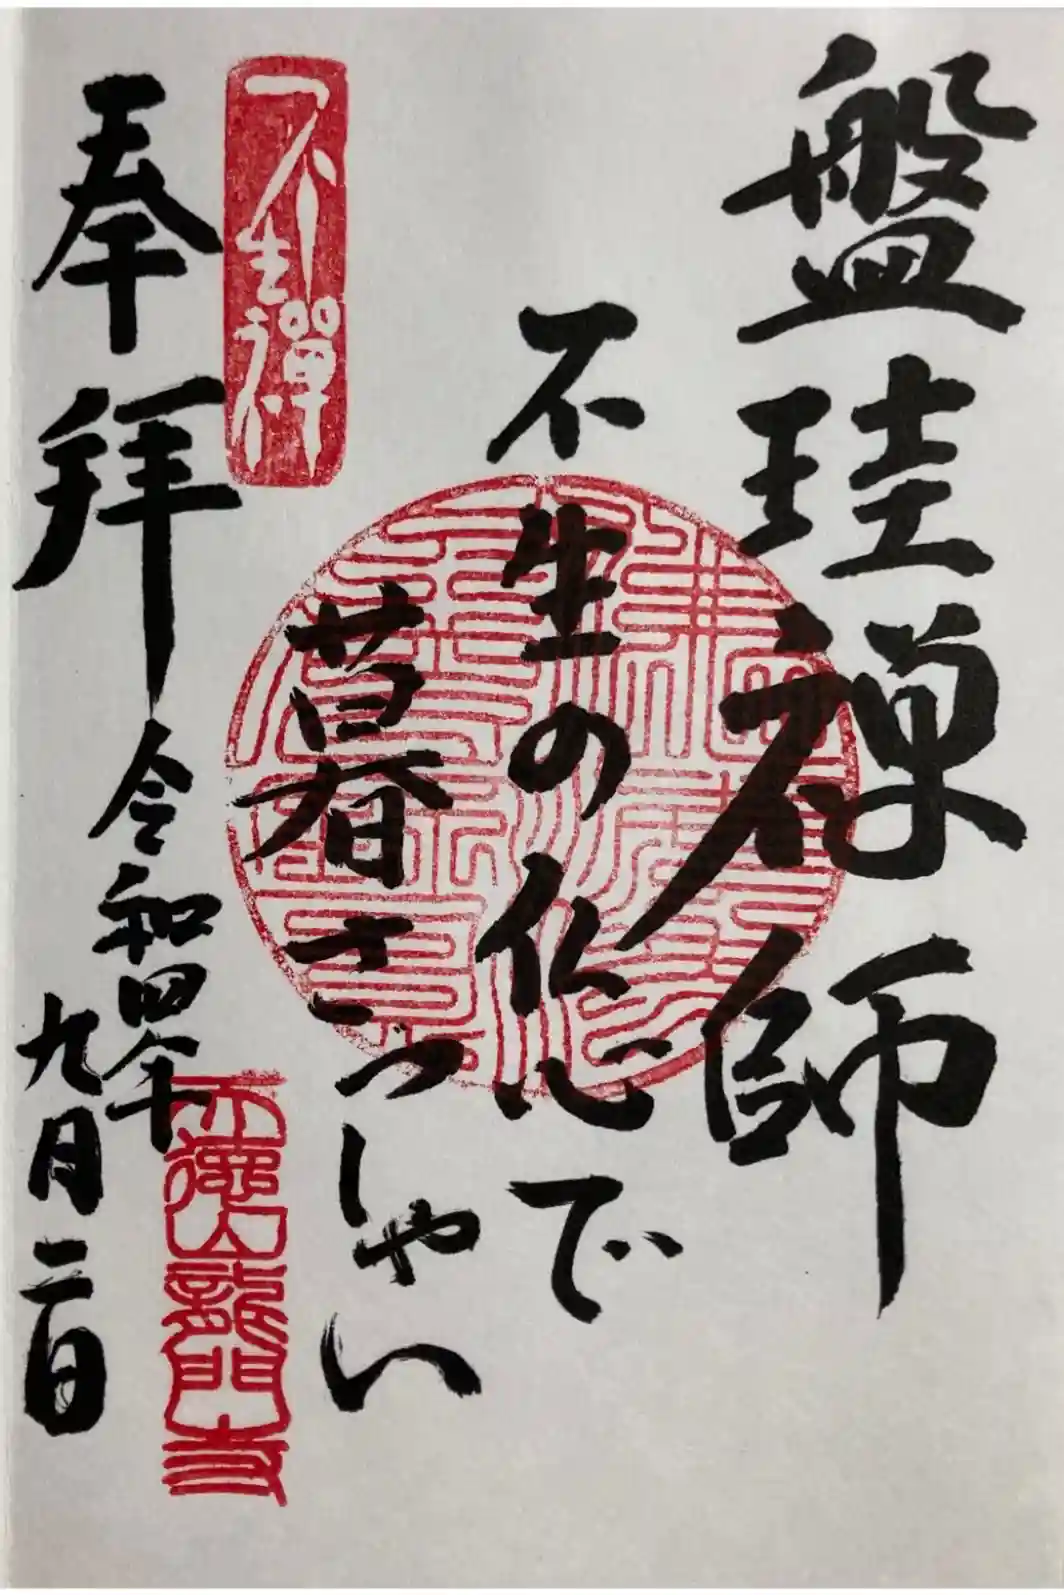 盤珪禅師
不生の仏心で
暮さっしゃい
不生禅
奉拝
令和四年
九月二日
天徳山龍門寺